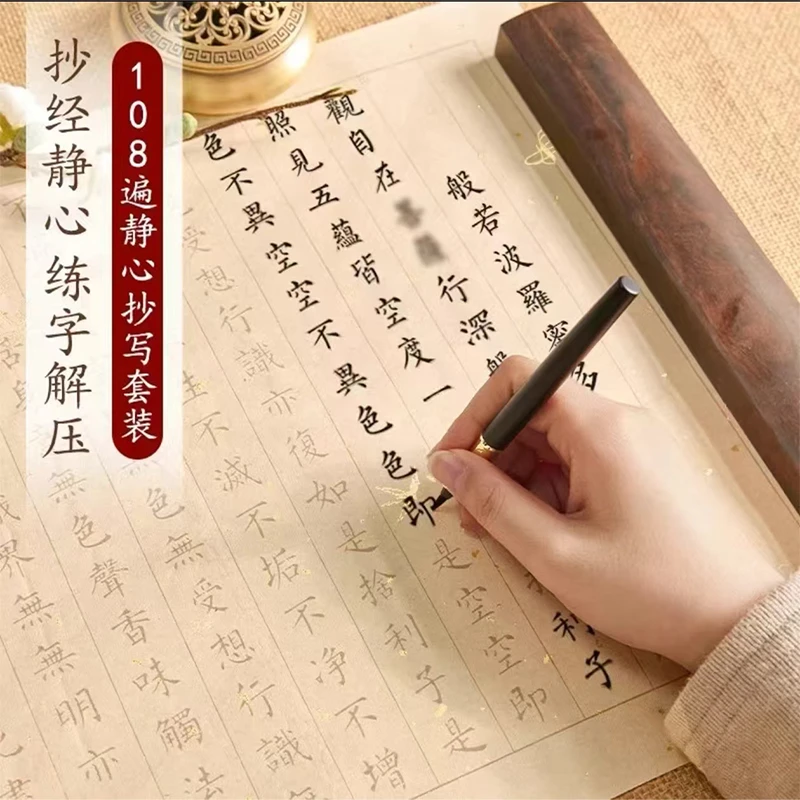 抄经静心 练字解压
108遍静心抄写套装
般若波羅密多
觀自在行深般
照見五蘊皆空度一利子
色不異空空不異色色即是空空即
受想行識亦復如是捨利子是
不滅不垢不净不增
色無受想行識
無色聲香味觸法
界無無明亦